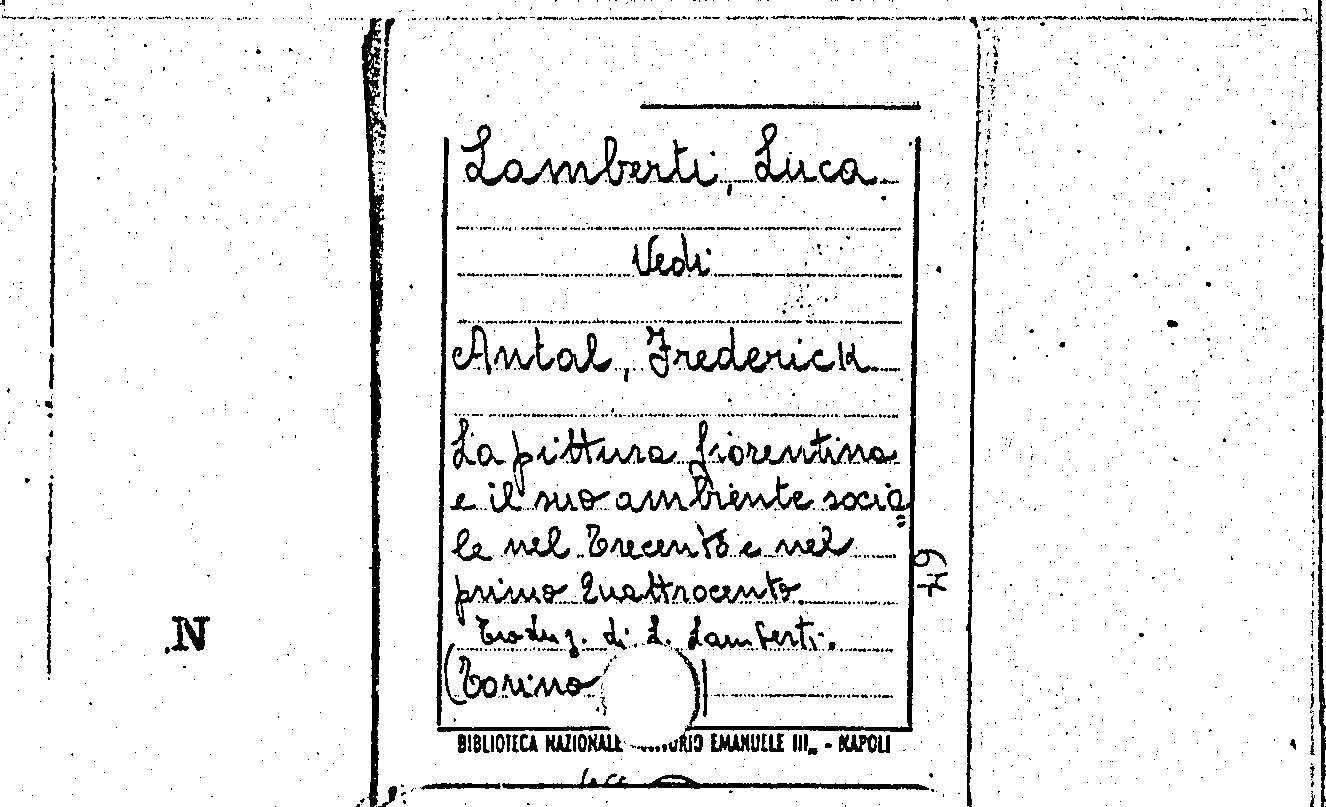 Lamberti, Luca
Vedi
Antal, Frederick
La pittura fiorentina
e il suo ambiente socia=
le nel Trecento e nel
primo Quattrocento.
Traduz. di L. Lamberti.
(Torino
BIBLIOTECA NAZIONALE EMANUELE III - NAPOLI
N